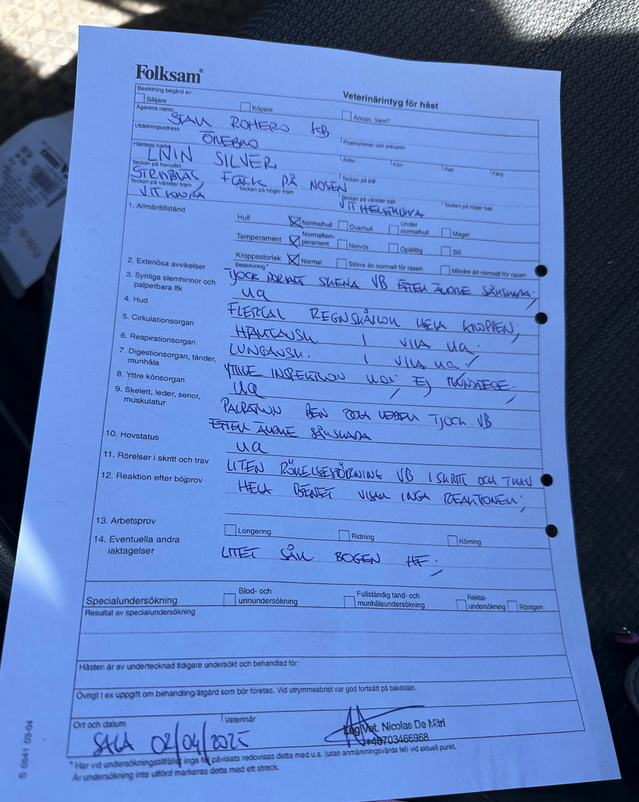 Folksam
Veterinärintyg för häst
Besiktning begärd av:
Säljare
Köpare
Annan. Vem?
Ägarens namn
STALL ROMERO KB
Utdelningsadress
Postnummer och ortnamn
ÖREBRO
Hästens namn
Ålder
Kön
Ras
Färg
SILVER
Tecken på huvudet
Tecken på bål
FLÄCK PÅ NOSEN
Tecken på vänster fram
Tecken på höger fram
Tecken på vänster bak
Tecken på höger bak
VIT
VIT
1. Allmäntillstånd
Hull
Normalhull
Överhull
Under normalhull
Mager
Temperament
Normaltemperament
Nervös
Opålitlig
Slö
Kroppsstorlek
Normal
Större än normalt för rasen
Mindre än normalt för rasen
Beskrivning*
2. Exteriösa avvikelser
TJOCK SKENA VB EFTER ÄLDRE SÅRSKADA;
3. Synliga slemhinnor och palperbara lfk
ua
4. Hud
FLERTAL REGNSKÅLLOR HELA KROPPEN;
5. Cirkulationsorgan
HJÄRTAUSK. I VILA ua.
6. Respirationsorgan
LUNGAUSK. I VILA ua;
7. Digestionsorgan, tänder, munhåla
YTTRE INSPEKTION ua; EJ
8. Yttre könsorgan
ua
9. Skelett, leder, senor, muskulatur
PALPATION BEN OCH LEDER TJOCK VB
EFTER ÄLDRE SÅRSKADA
10. Hovstatus
ua
11. Rörelser i skritt och trav
LITEN RÖRELSESTÖRNING VB I SKRITT OCH TRAV
12. Reaktion efter böjprov
HELA BENET VISAR INGA REAKTIONER;
13. Arbetsprov
Longering
Ridning
Körning
14. Eventuella andra iaktagelser
LITET SÅR BOGEN HF;
Specialundersökning
Blod- och urinundersökning
Fullständig tand- och munhåleundersökning
Rektalundersökning
Röntgen
Resultat av specialundersökning
Hästen är av undertecknad tidigare undersökt och behandlad för:
Övrigt t ex uppgift om behandling/åtgärd som bör företas. Vid utrymmesbrist var god fortsätt på baksidan.
Ort och datum
Veterinär
SALA 02/04/2025
Leg Vet. Nicolas De Mitri
+46703466968
* Har vid undersökningstillfället inga fel påvisats redovisas detta med u.a. (utan anmärkningsvärda fel) vid aktuell punkt.
Är undersökning inte utförd markeras detta med ett streck.
S 0541 03-04